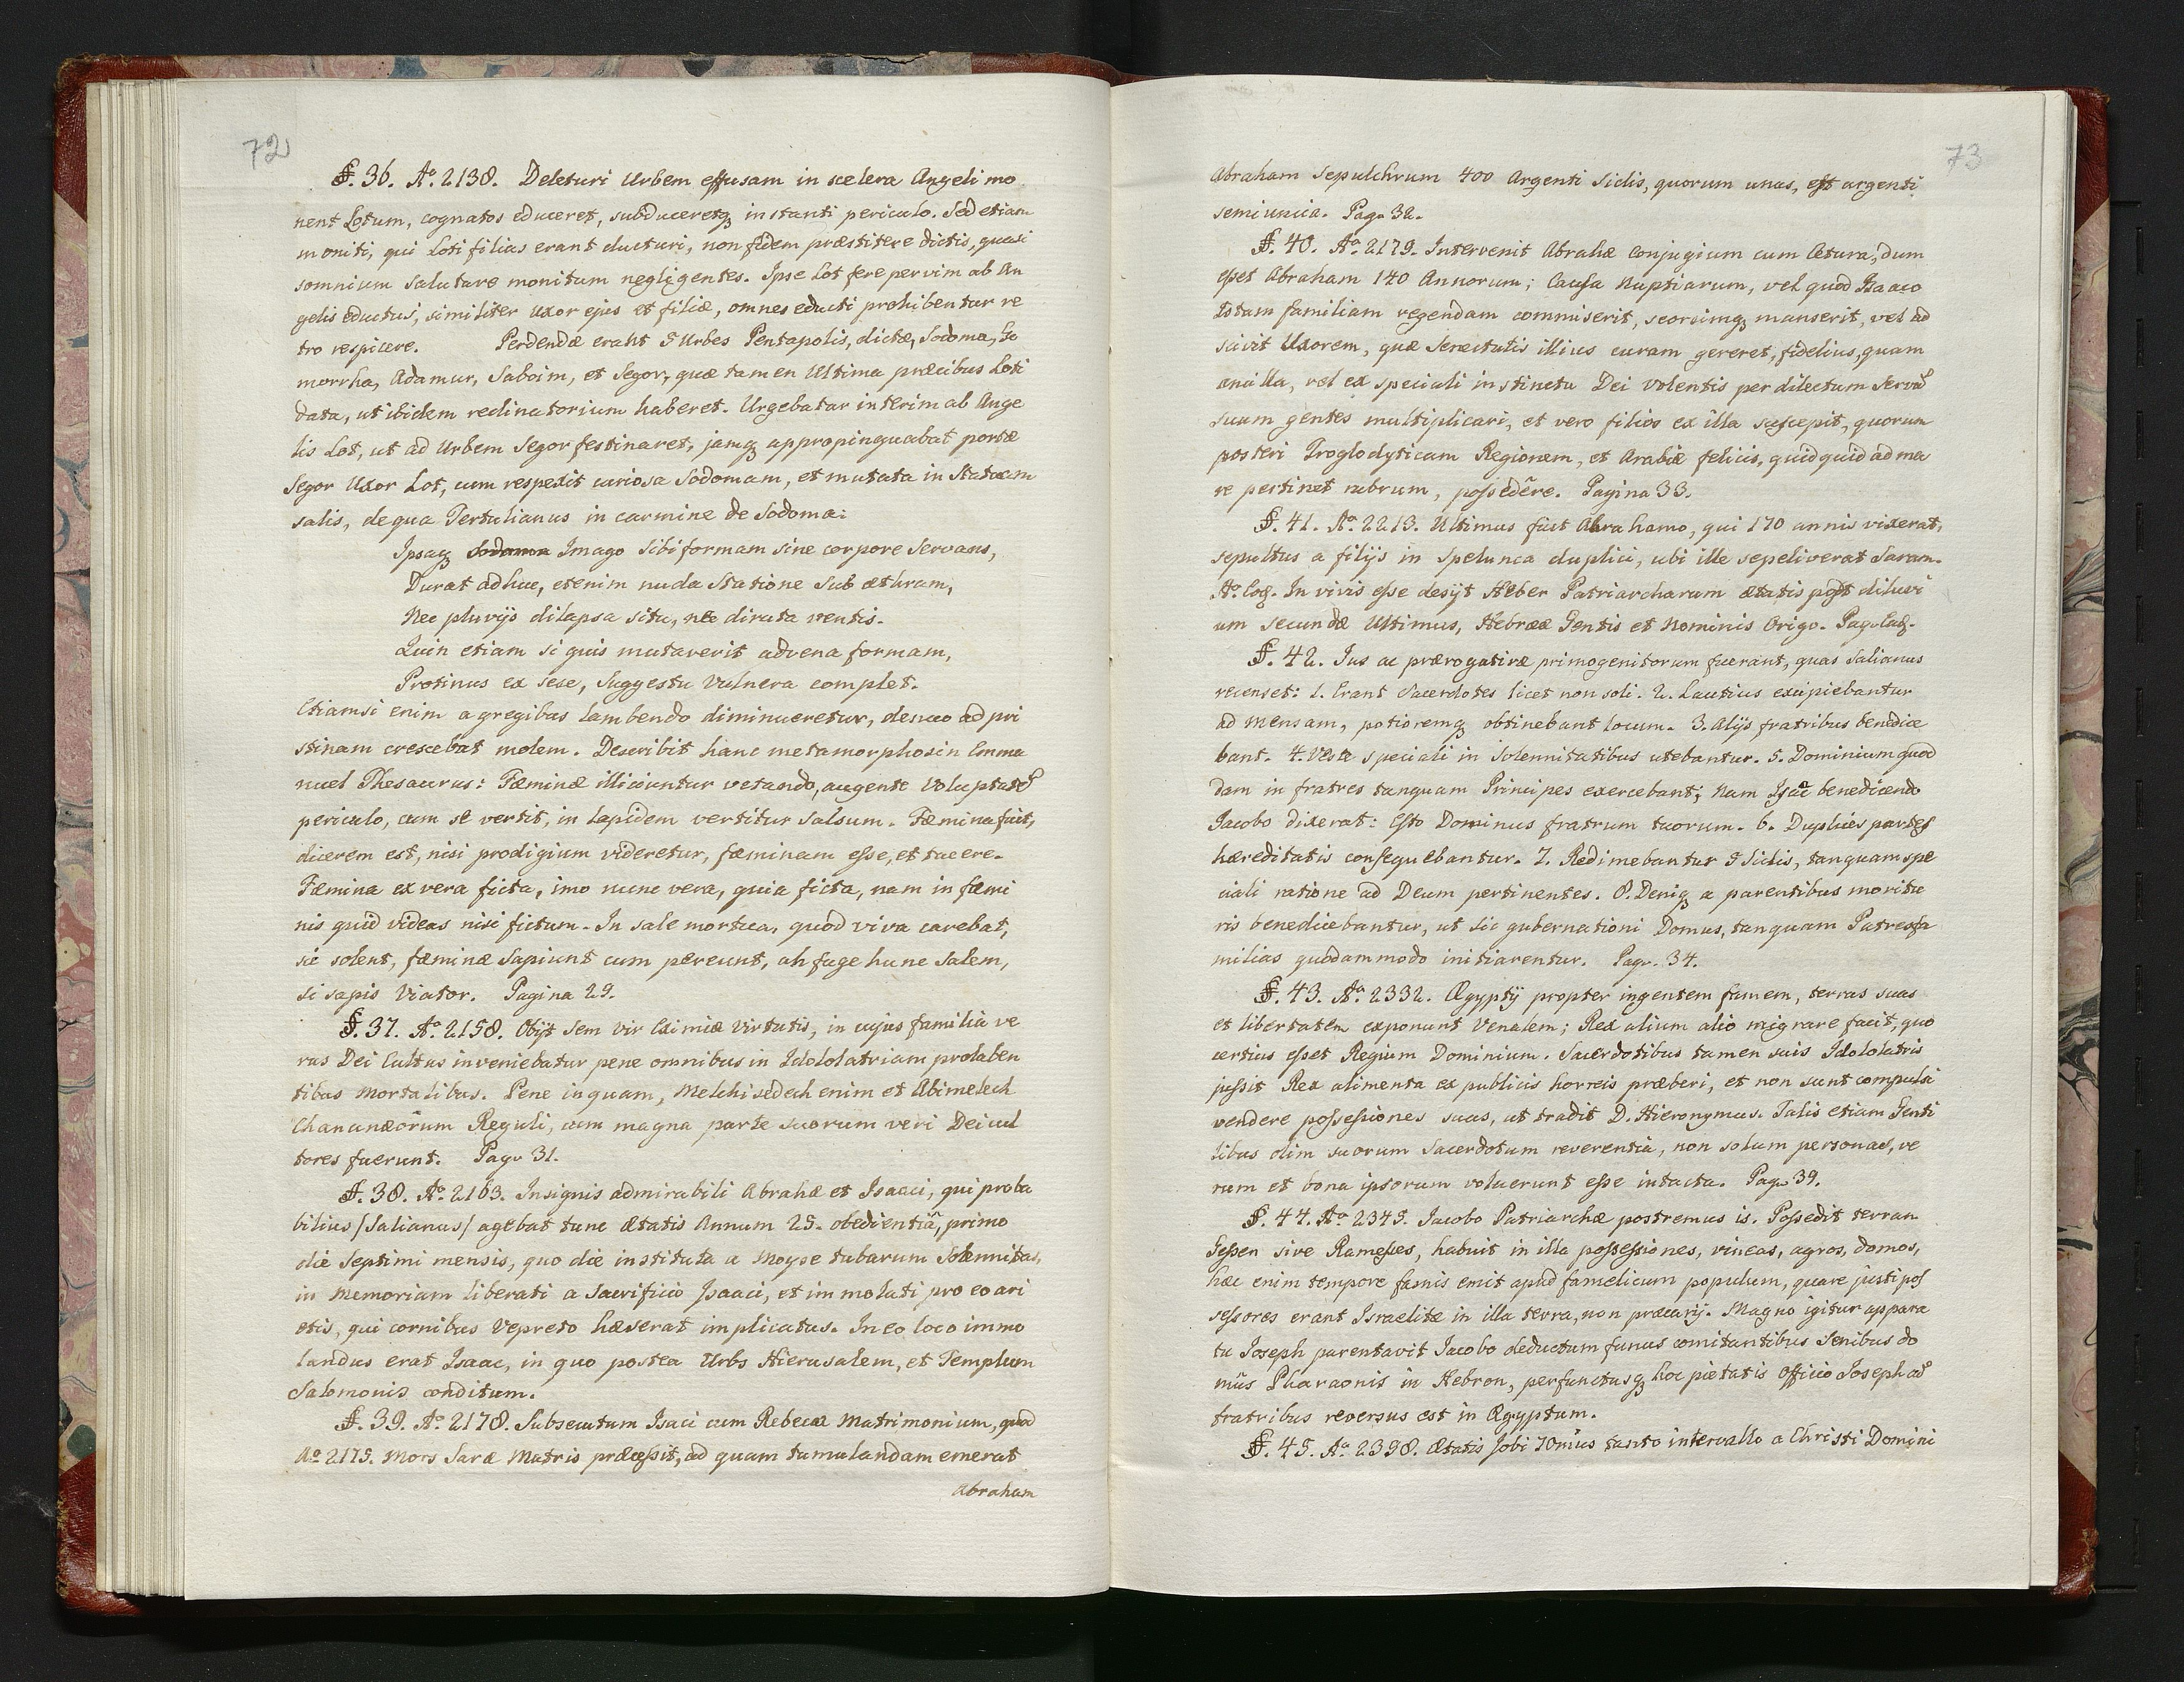 72
§. 36. Aº. 2138. Deleturi Urbem effusam in scelera Angeli mo
nent Lotum, cognatos educeret, subduceretq instanti periculo. Sed etiam
moniti, qui Loti filias erant ducturi, non fidem præstitere dictis, quasi
somnium salutare monitum negligentes. Ipse Lot fere per vim ab An
gelis eductus, similiter uxor ejus et filiæ, omnes educti prohibentur re
tro respicere. Perdendæ erant 5 Urbes Pentapolis, dictæ, Sodoma, Go
morrha, Adamur, Saboim, et Segor, quæ tamen Ultima præcibus Loti
data, ut ibidem reclinatorium haberet. Urgebatur interim ab Ange
lis Lot, ut ad Urbem Segor festinaret, jamq appropinquabat portæ
Segor Uxor Lot, cum respexit curiosa Sodomam, et mutata in Statuam
salis, de qua Tertulianus in carmine de Sodoma:
Ipsaq Imago sibi formam sine corpore servans,
Durat adhuc, etenim nuda statione sub æthram,
Nec pluvijs dilapsa situ, nec diruta ventis.
Quin etiam si quis mutaverit advena formam,
Protinus ex sese, suggestu vulnera complet.
Etiamsi enim a gregibus lambendo diminueretur, denuo ad pri
stinam crescebat molem. Describit hanc metamorphosin Emma
nuel Thesaurus: Fæminæ illiciuntur vetando, augente Voluptatē
periculo, cum se vertit, in Lapidem vertitur salsum. Fæmina fuit,
dicerem est, nisi prodigium videretur, fæminam esse, et tacere.
Fæmina ex vera ficta, imo nunc vera, quia ficta, nam in fæmi
nis quid videas nisi fictum. In sale mortua, quod viva carebat,
sic solent, fæminæ sapiunt cum pereunt, ah fuge hunc Salem,
si sapis Viator. Pagina 29.
§. 37. Aº. 2158. Obijt Sem vir Eximiæ Virtutis, in cujus familia ve
rus Dei Cultus inveniebatur pene omnibus in Idololatriam prolaben
tibus Mortalibus. Pene inquam, Melchisedech enim et Abimelech
Chananæorum Reguli, cum magna parte suorum veri Dei cul
tores fuerunt. Pag. 31.
§. 38. Aº. 2163. Insignis admirabili Abrahæ et Isaaci, qui proba
bilius /Salianus/ agebat tunc ætatis Annum 25. obedientiâ, primo
die Septimi mensis, quo die instituta a Moyse tubarum Solennitas,
in Memoriam liberati a Sacrificio Isaaci, et immolati pro eo ari
etis, qui cornibus Vepreto hæserat implicatus. In eo loco immo
landus erat Isaac, in quo postea Urbs Hierusalem, et Templum
Salomonis conditum.
§. 39. Aº. 2178. Subsecutum Isaci cum Rebecca Matrimonium, quod
Aº 2175. Mors Saræ Matris præcessit, ad quam tumulandam emerat
Abraham
73
Abraham Sepulchrum 400 Argenti Siclis, quorum unus, est argenti
semiuncia. Pag. 32.
§. 40. Aº. 2179. Intervenit Abrahæ Conjugium cum Cetura, dum
esset Abraham 140 Annorum; Causa Nuptiarum, vel quod Isaaco
totam familiam regendam commiserit, seorsimq manserit, vel ad
scivit Uxorem, quæ Senectutis illius curam gereret, fidelius, quam
ancilla, vel ex speciali instinctu Dei volentis per dilectum Servū
suum gentes multiplicari, et vero filios ex illa suscepit, quorum
posteri Troglodyticam Regionem, et Arabiæ felicis, quidquid ad ma
re pertinet rubrum, possedêre. Pagina 33.
§. 41. Aº. 2213. Ultimus fuit Abrahamo, qui 170 annis vixerat,
sepultus a filijs in Spelunca duplici, ubi ille sepeliverat Saram.
Aº. Eoq. In vivis esse desijt Heber Patriarcharum ætatis post diluvi
um secundæ Ultimus, Hebrææ Gentis et Nominis Origo. Pag. Eaq.
§. 42. Ius ac prærogativæ primogenitorum fuerant, quas Salianus
recenset: 1. Erant Sacerdotes licet non soli. 2. Lautius excipiebantur
ad Mensam, potioremq obtinebant locum. 3. Alijs fratribus benedice
bant. 4. Veste speciali in Solennitatibus utebantur. 5. Dominium quod
dam in fratres tanquam Principes exercebant; Nam Isac benedicendo
Jacobo dixerat: Esto Dominus fratrum tuorum. 6. Duplices partes
hæreditatis consequebantur. 7. Redimebantur 5 Siclis, tanquam spe
ciali ratione ad Deum pertinentes. 8. Deniq a parentibus moritu
ris benedicebantur, ut sic gubernationi Domus, tanquam Patresfa
milias quodammodo initiarentur. Pag. 34.
§. 43. Aº. 2332. Ægyptij propter ingentem famem, terras suas
et libertatem exponunt Venalem; Rex alium alio migrare facit, quo
certius esset Regium Dominium. Sacerdotibus tamen suis Idololatris
jussit Rex alimenta ex publicis horreis præberi, et non sunt compulsi
vendere possessiones suas, ut tradit D. Hieronymus. Talis etiam Genti
libus olim suorum Sacerdotum reverentia, non solum personas, ve
rum et bona ipsorum voluerunt esse intacta. Pag. 39.
§. 44. Aº 2345. Jacobo Patriarchæ postremus is. Possedit terram
Gessen sive Ramesses, habuit in illa possessiones, vineas, agros, domos,
hæc enim tempore famis emit apud famelicum populum, quare justi pos
sessores erant Israelitæ in illa terra, non præcarij. Magno igitur appara
tu Joseph parentavit Jacobo deductum funus comitantibus Senibus do
mûs Pharaonis in Hebron, perfunctusq hoc pietatis Officio Joseph cū
fratribus reversus est in Ægyptum.
§. 45. Aº. 2398. Ætatis Jobi 70mus tanto intervallo a Christi Domini